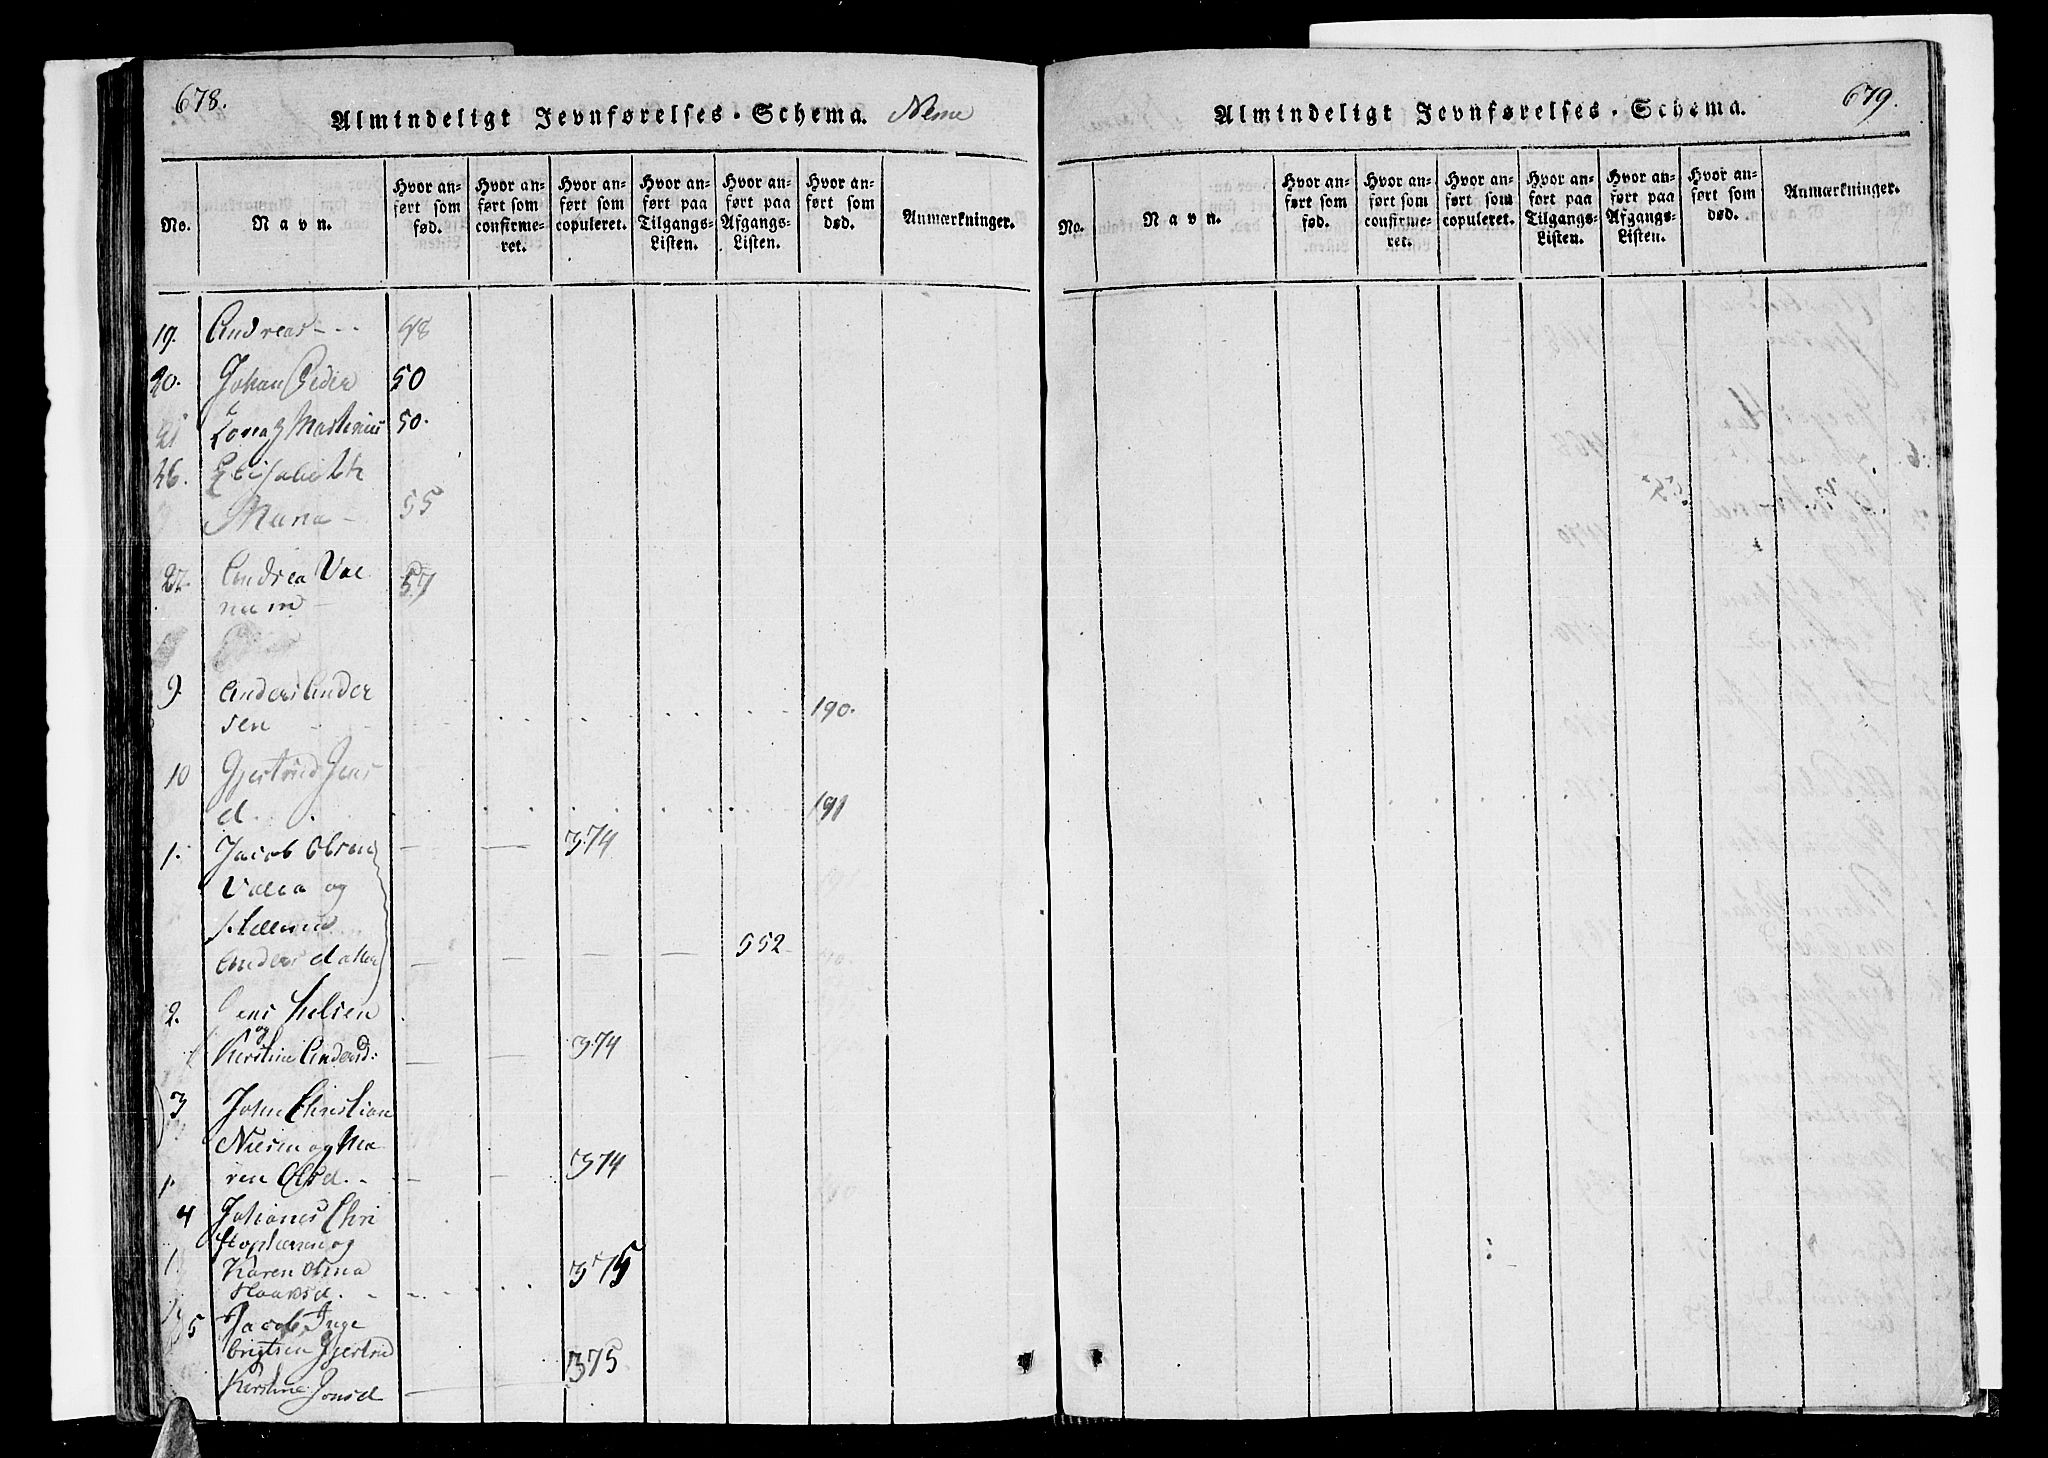 678.
Almindeligt Jevnførelses-Schema.
No.
Navn.
Hvor an-
ført som
fød.
Hvor an-
ført som
confirme-
ret.
Hvor an-
ført som
copuleret.
Hvor an-
ført paa
Tilgangs-
Listen.
Hvor an-
ført paa
Afgangs-
Listen.
Hvor an-
ført som
død.
Anmærkninger.
19. Andreas - - - 48
20. Johan Peder 50
21 Martinus 50.
26. Elisabeth
Maria - 55
27. Andrea Va
57
9. Anders Ander
sen 190.
10 Gjertrud Jens
d. 191
1. Jacob Olsen 374
og
Andersdatter 552
2. Jens
og
Kirstine Andersd: 374
3 John Christian
Nielsen og Ma
ren Olsd. 374
4 Johanes Chri
stophersen og
Karen
375
5 Jacob Inge
brigtsen Gjertrud 375
Kirstine Jonsd
679.
Almindeligt Jevnførelses-Schema.
No.
Navn.
Hvor an-
ført som
fød.
Hvor an-
ført som
confirme-
ret.
Hvor an-
ført som
copuleret.
Hvor an-
ført paa
Tilgangs-
Listen.
Hvor an-
ført paa
Afgangs-
Listen.
Hvor an-
ført som
død.
Anmærkninger.